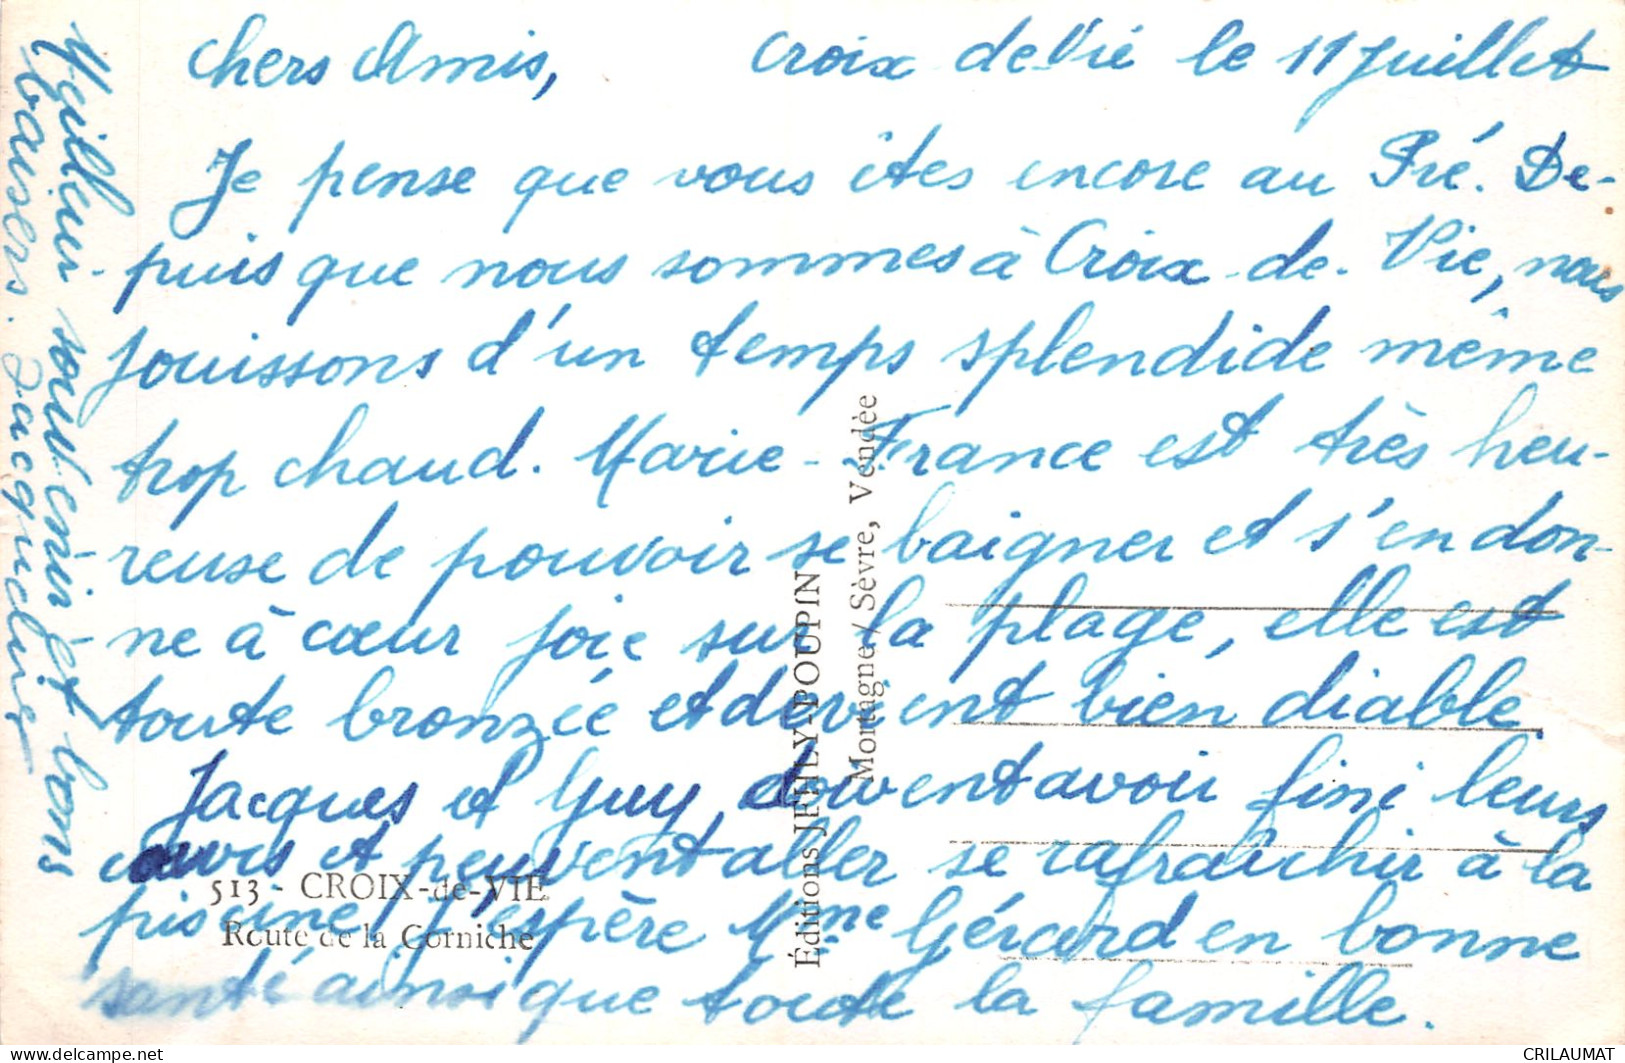 Chers Amis, Croix de Vie le 11 Juillet
Je pense que vous êtes encore au Pré. De-
puis que nous sommes à Croix-de-Vie, nous
jouissons d'un temps splendide même
trop chaud. Marie-France est très heu-
reuse de pouvoir se baigner et s'en don-
ne à cœur joie sur la plage, elle est
toute bronzée et devient bien diable
Jacques et Guy, doivent avoir fini leurs
cours et peuvent aller se rafraîchir à la
piscine, j'espère Mme Gérard en bonne
santé ainsi que toute la famille.
Meilleur souvenir et bons
baisers. Jacqueline
513 - CROIX-de-VIE
Route de la Corniche
Éditions JEHLY-POUPIN
Mortagne/Sèvre, Vendèe
CRILAUMAT